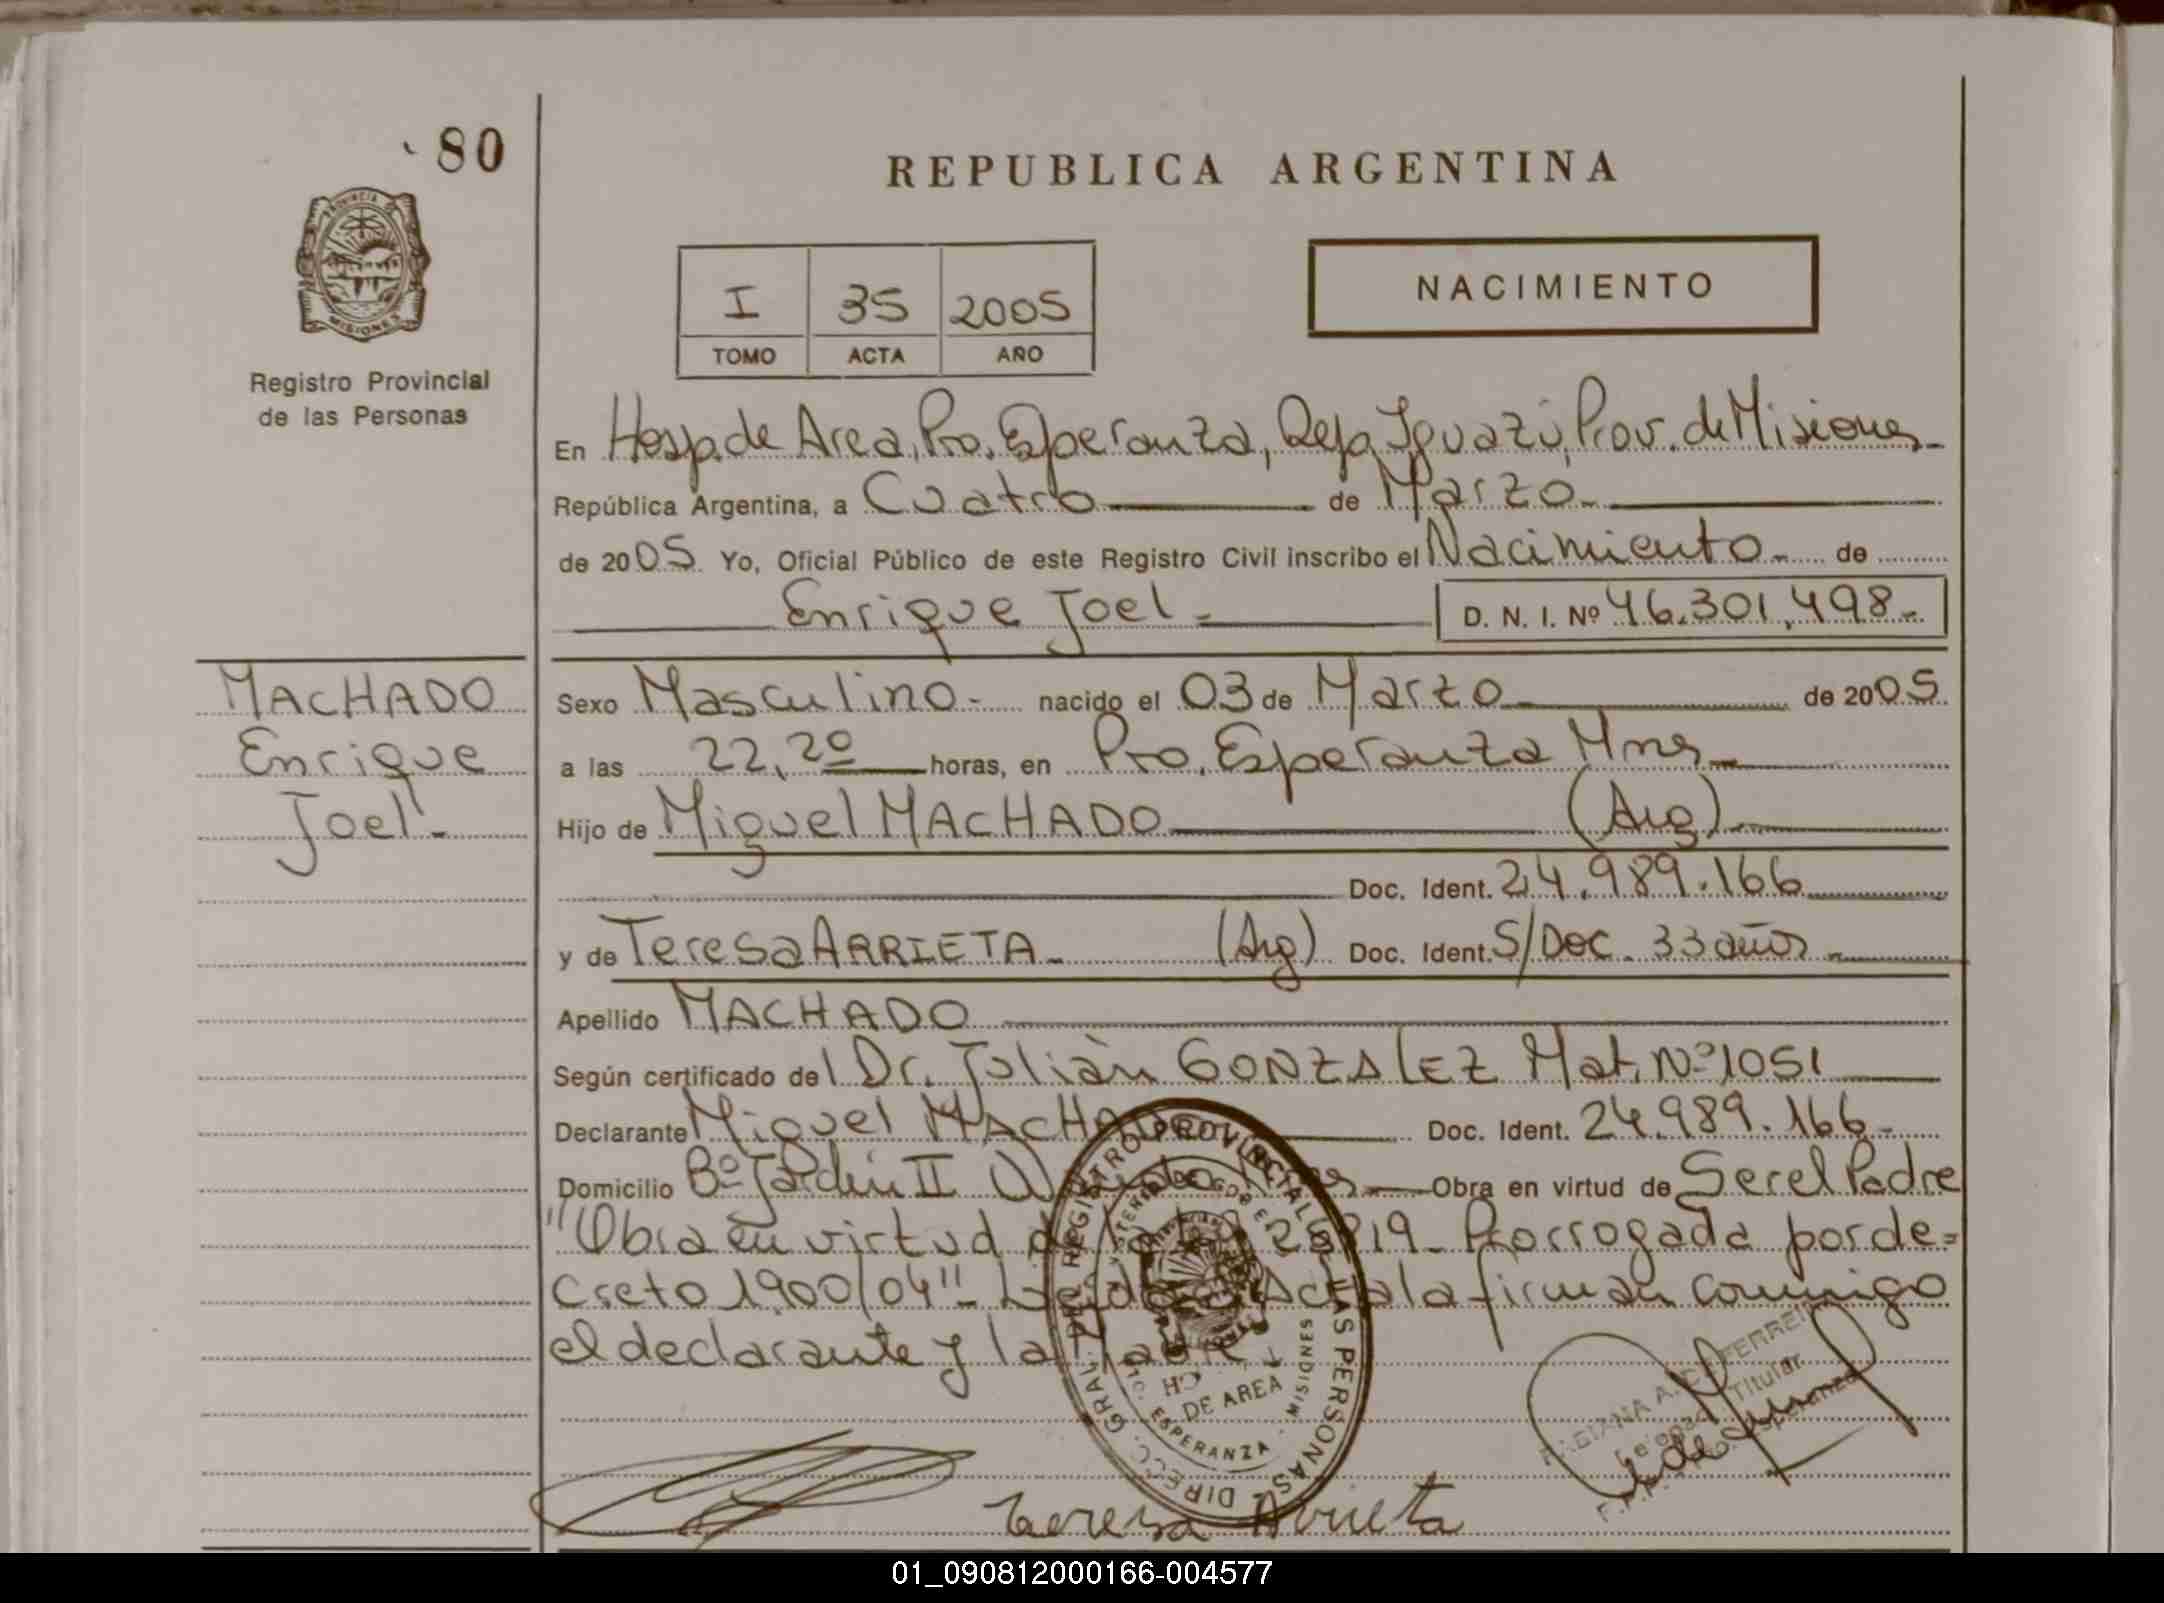 80
REPUBLICA ARGENTINA
PROVINCIA DE
MISIONES
Registro Provincial
de las Personas
I 35 2005
TOMO ACTA AÑO
NACIMIENTO
En Hosp. de Area, Pto. Esperanza, Depto. Iguazú, Prov. de Misiones
República Argentina, a Cuatro de Marzo
de 2005 Yo, Oficial Público de este Registro Civil inscribo el Nacimiento de
Enrique Joel D. N. I. Nº 46.301.498
MACHADO
Enrique
Joel
Sexo Masculino nacido el 03 de Marzo de 2005
a las 22,20 horas, en Pto. Esperanza Mnes
Hijo de Miguel MACHADO (Arg)
Doc. Ident. 24.989.166
y de Teresa ARRIETA (Arg) Doc. Ident. S/Doc. 33 años
Apellido MACHADO
Según certificado del Dr. Julián GONZALEZ Mat. Nº 1051
Declarante Miguel MACHADO Doc. Ident. 24.989.166
Domicilio Bº Jardín II Obra en virtud de Ser el Padre
"Obra en virtud de la Ley 25819 Prorrogada por de=
creto 1900/04" Leída el Acta la firman conmigo
el declarante y la Madre
DIRECC. GRAL. DEL REGISTRO PROVINCIAL DE LAS PERSONAS
DE AREA
ESPERANZA - MISIONES
FABIANA A.
Titular
Teresa Arrieta
01_090812000166-004577